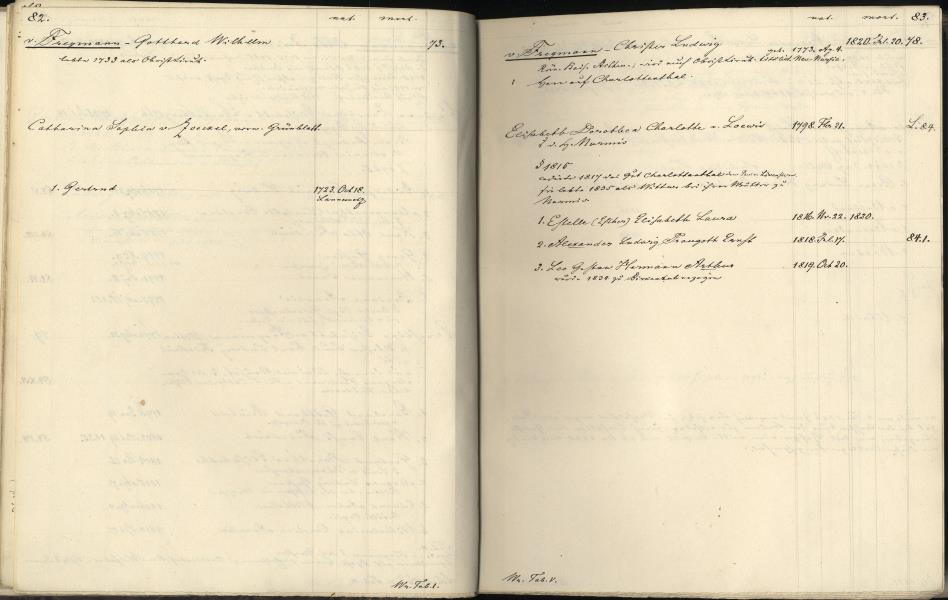 82. nat. mort.
v. Freymann - Gotthard Wilhelm 73.
lebte 1733 als Obristlieut.
Catharina Sophia v. Zoeckel, verw. Grünblatt.
1. Gertrud 1723. Oct 18.
Lannemetz
Wr. Tab. I.
nat. mort. 83.
v. Freymann - Christer Ludwig geb. 1773. Ag. 4. 1820. Jul. 20. 78.
Herr auf Charlottenthal.
Elisabeth Dorothea Charlotte v. Loewis 1798. Fbr 21. L. 84.
d. v. Nurmis
§ 1815
1817 das Gut Charlottenthal
lebte 1835 als Wittwe bei ihrer Mutter zu
Nurmis.
1. Estelle (Esther) Elisabeth Laura 1816. Nv. 22. 1830.
2. Alexander Ludwig Traugott Ernst 1818. Jul. 17. 84.1.
3. Leo Gustav Hermann Arthur 1819. Oct 20.
1834 zu
Wr. Tab. V.